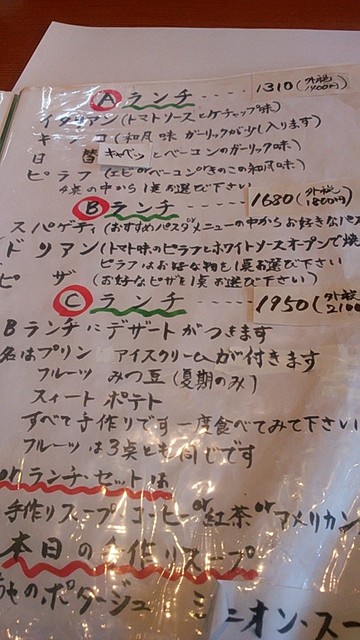 Ⓐランチ 1310(外税1400円)
イタリアン(トマトソースとケチャップ味)
キノコ(和風味 ガーリックが少し入ります)
日 替 キャベツとベーコンのガーリック味)
ピラフ(エビorベーコンorきのこの和風味)
4菜の中から1菜お選び下さい
Ⓑランチ 1680(外税1800円)
スパゲティ(おすすめパスタorメニューの中からお好きなパス
ドリアン(トマト味のピラフとホワイトソースオーブンで焼
ピラフはお好な物を1菜お選び下さい
ピザ(お好なピザを1菜お選び下さい)
Ⓒランチ 1950(外税2100
Bランチにデザートがつきます
名はプリン アイスクリームが付きます
フルーツ みつ豆(夏期のみ)
スィート ポテト
すべて手作りです一度食べてみて下さい
フルーツは3点とも同じです
orランチ・セットは
手作りスープorコーヒーor紅茶orアメリカン
本日の手作りスープ
ものポタージュ ミニオン・スー